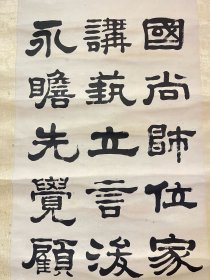 國尚師位家
講藝立言浚
永瞻先覺顧